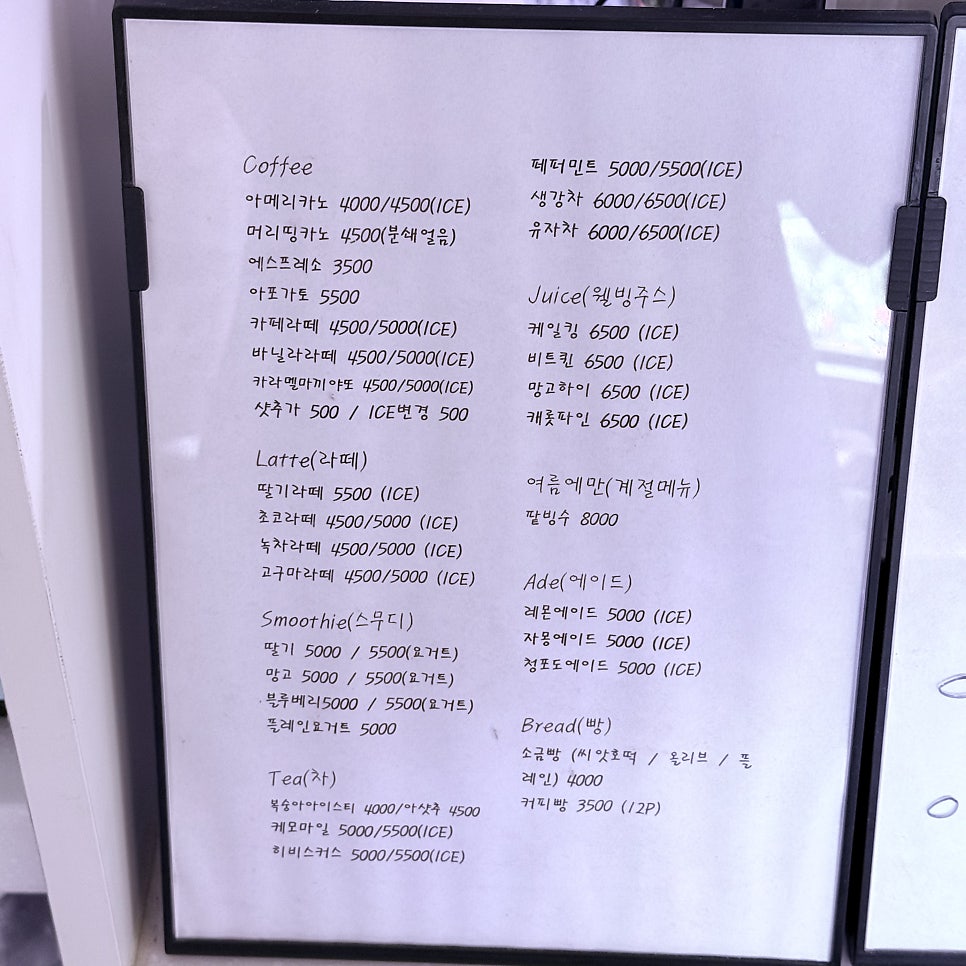 Coffee
아메리카노 4000/4500(ICE)
머리띵카노 4500(분쇄얼음)
에스프레소 3500
아포가토 5500
카페라떼 4500/5000(ICE)
바닐라라떼 4500/5000(ICE)
카라멜마끼야또 4500/5000(ICE)
샷추가 500 / ICE변경 500
Latte(라떼)
딸기라떼 5500 (ICE)
초코라떼 4500/5000 (ICE)
녹차라떼 4500/5000 (ICE)
고구마라떼 4500/5000 (ICE)
Smoothie(스무디)
딸기 5000 / 5500(요거트)
망고 5000 / 5500(요거트)
블루베리5000 / 5500(요거트)
플레인요거트 5000
Tea(차)
복숭아아이스티 4000/아샷추 4500
케모마일 5000/5500(ICE)
히비스커스 5000/5500(ICE)
페퍼민트 5000/5500(ICE)
생강차 6000/6500(ICE)
유자차 6000/6500(ICE)
Juice(웰빙주스)
케일킹 6500 (ICE)
비트퀸 6500 (ICE)
망고하이 6500 (ICE)
캐롯파인 6500 (ICE)
여름에만(계절메뉴)
팥빙수 8000
Ade(에이드)
레몬에이드 5000 (ICE)
자몽에이드 5000 (ICE)
청포도에이드 5000 (ICE)
Bread(빵)
소금빵 (씨앗호떡 / 올리브 / 플
레인) 4000
커피빵 3500 (12P)